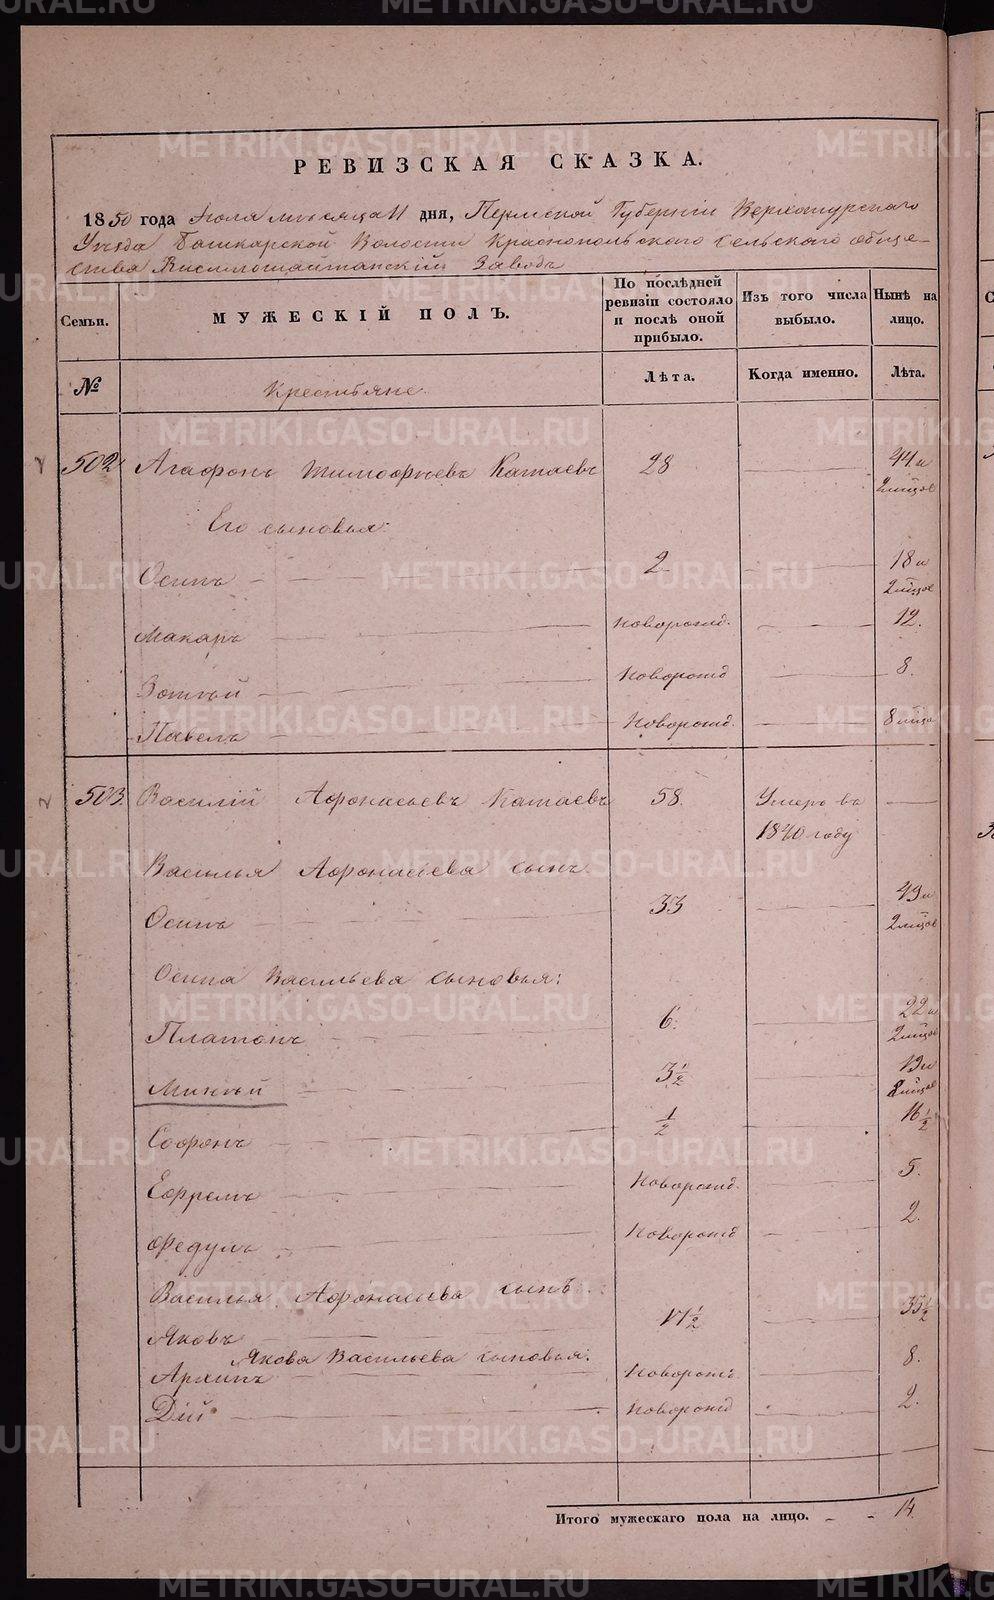 РЕВИЗСКАЯ СКАЗКА.
1850 года Июля месяца 11 дня, Пермской Губерніи Верхотурскаго
Уѣзда Башкарской Волости Краснопольскаго сельскаго обще-
ства Висимошайтанскій Заводъ
Семьи.
МУЖЕСКІЙ ПОЛЪ.
По послѣдней ревизіи состояло и послѣ оной прибыло.
Изъ того числа выбыло.
Нынѣ на лицо.
№
Крестьяне.
Лѣта.
Когда именно.
Лѣта.
502 Агафонъ Тимофѣевъ Катаевъ 28 44 и 2 мѣцов
Его сыновья:
Осипъ 2. 18 и 2 мѣцов
Макаръ новорожд. 12.
Зотѣй новорожд 8.
Павелъ новорожд. 8 мѣцо
503. Василій Афонасьевъ Катаевъ 58. Умеръ въ
1840 году
Василья Афонасьева сынъ
Осипъ 33 49 и 2 мѣцов
Осипа Васильева сыновья:
Платонъ 6. 22 и 2 мѣцов
Минѣй 3½ 19 и 8 мѣцов
Софонъ ½ 16½
Ефремъ новорожд. 5.
Федулъ новорожд 2.
Василья Афонасьева сынъ:
Яковъ 17½ 35½
Якова Васильева сыновья:
Архипъ новорожд. 8.
Дій новорожд 2.
Итого мужескаго пола на лицо. 14.
METRIKI.GASO-URAL.RU